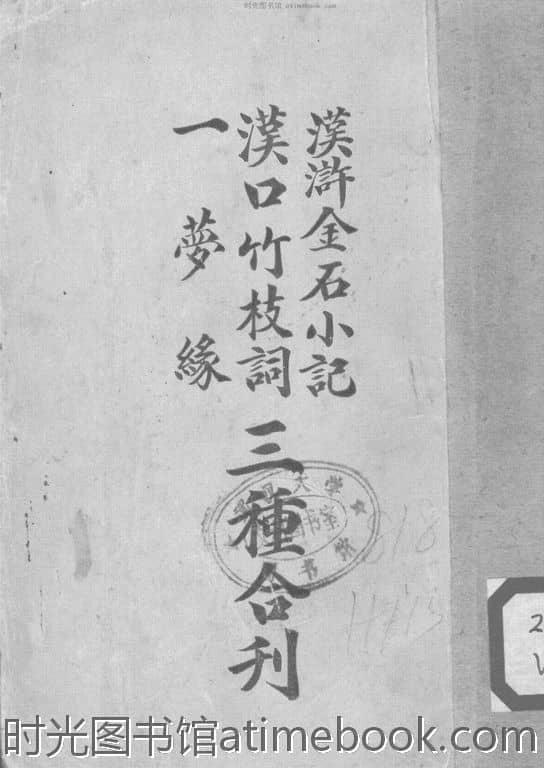 时光图书馆 atimebook.com
漢滸金石小記
漢口竹枝詞
一夢緣
三種合刊
大学
图书馆
书
2
时光图书馆atimebook.com